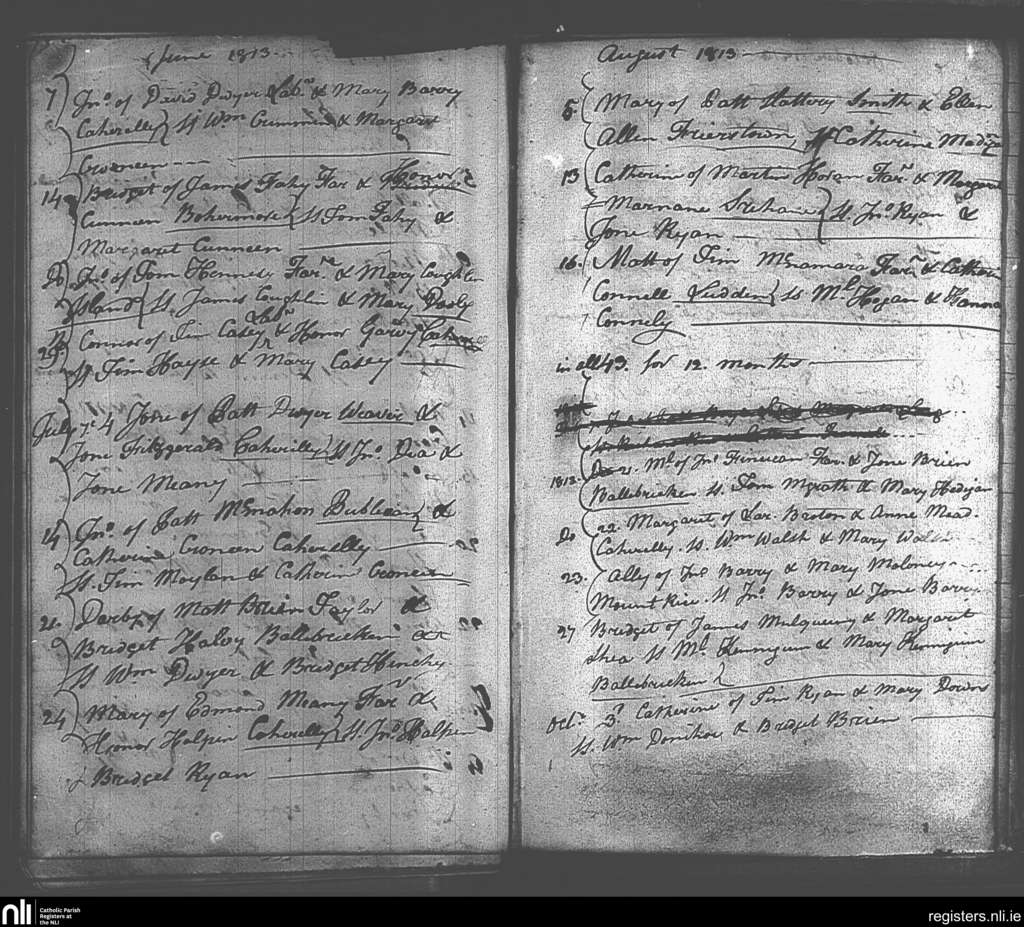 June 1813
7 Jno. of David Dwyer Labr. & Mary Barry
Caherelly } Ss Wm Crimmin & Margaret
Croneen
14 Bridget of James Fahy Far & Honor
Cunneen Bohermore } Ss Tom Fahy &
Margaret Cunneen
20 Jno. of Tom Hennesy Far. & Mary Coughlin
Island } Ss. James Coughlin & Mary Dooly
29. Connor of Tim Casey Labr & Honor
Ss Tim Hayse & Mary Casey
July 4 Jone of Patt Dwyer Weaver &
Jone Fitzgerald Caherelly } Ss Jno. Dea &
Jone Meany
14 Jno. of Patt McMahon Publican } &
Catherine Croneen Caherelly
Ss. Tim Moylan & Catherine Croneen
21. Darby of Matt Brien Taylor &
Bridget Halvy Ballebricken
Ss Wm Dwyer & Bridget Hinchy
24 Mary of Edmond Meany Far &
Honor Halpin Caherelly } Ss. Jno. Halpin
& Bridget Ryan
August 1813
5 Mary of Patt Slattery Smith & Ellen
Allen Frierstown, Ss Catherine
13 Catherine of Martin Horan Far. & Margaret
Marnane Srehane } Ss. Jno. Ryan &
Jone Ryan
16. Matt of Tim McNamara Far. & Catherine
Connell Ludden } Ss Ml. Hogan & Honora
Connely
in all 43. for 12. months
1813. 21. Ml. of Jno. Finucan Far. & Jone Brien
Ballebricken Ss. Tom Mgrath & Mary Hedigan
Do 22. Margaret of Lar. Broton & Anne Mead.
Caherelly. Ss. Wm Walsh & Mary Walsh
23. Ally of Jno Barry & Mary Moloney
Mount Rice. Ss Jno. Barry & Jone Barry
27 Bridget of James Mulqueeny & Margaret
Shea Ss Ml. Kennigan & Mary Kennigan
Ballebricken }
Octr. 3d. Catherine of Tim Ryan & Mary Downs
Ss. Wm Donihoe & Bridget Brien
nli Catholic Parish
Registers at
the NLI
registers.nli.ie